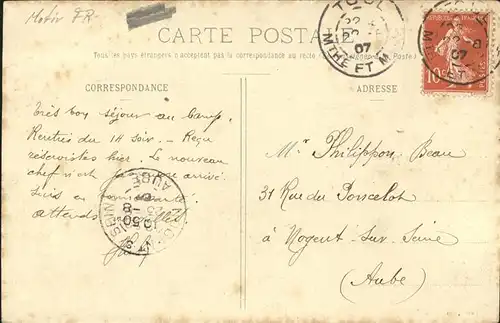 Motiv FR
CARTE POSTALE
Tous les pays étrangers n'acceptent pas la correspondance au recto
CORRESPONDANCE
ADRESSE
TOUL
07
MTHE ET M
10
Très bon séjour au Camp.
Rentrés du 14 soir. - Reçu
réservistes hier. Le nouveau
chef n'est arrivé.
Suis en
attends
AUBE
8
10 50
Mr Philippon Beau
31 Rue du
à Nogent-sur-Seine
(Aube)